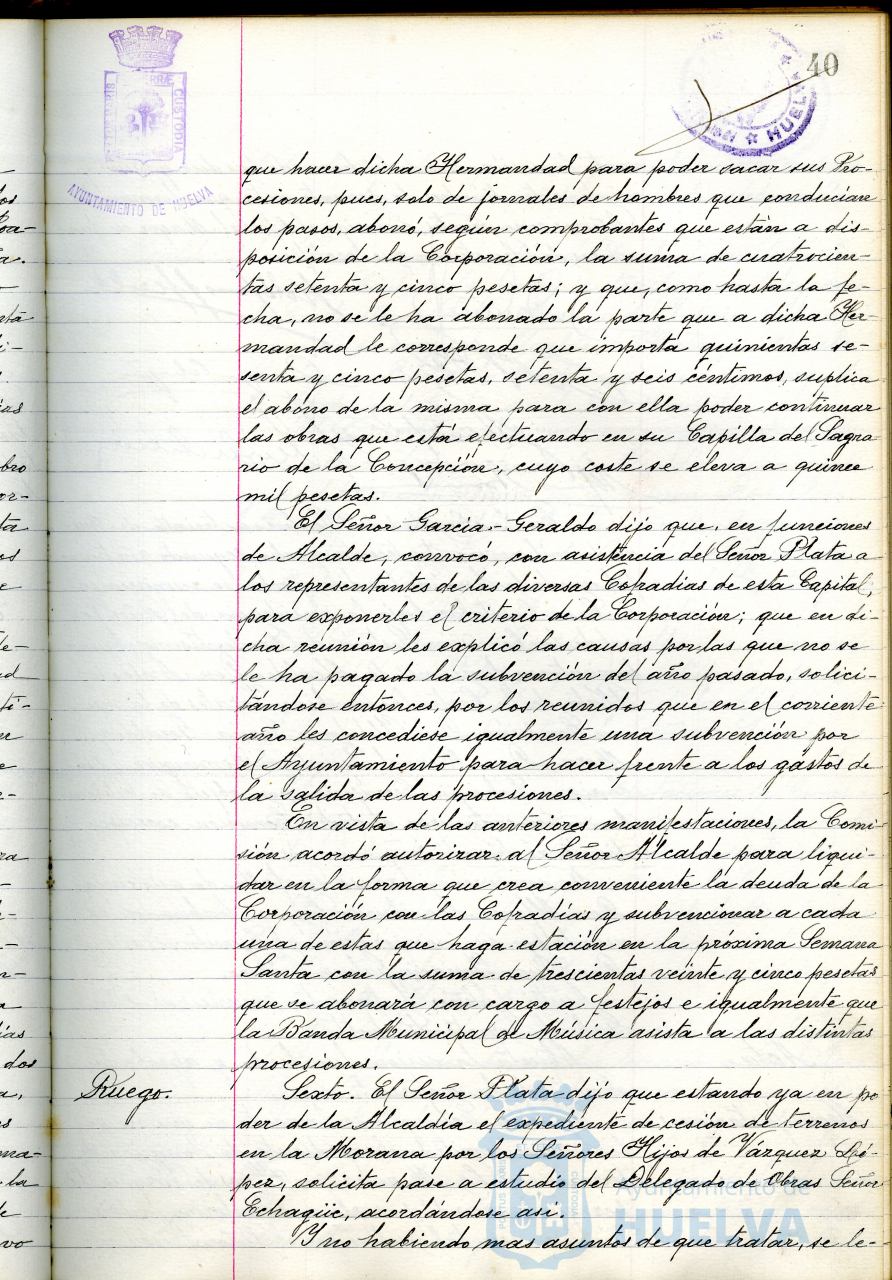 40
PORTUS MARIS ET TERRÆ CUSTODIA
AYUNTAMIENTO DE HUELVA
HUELVA
que hacer dicha Hermandad para poder sacar sus Pro-
cesiones, pues, solo de jornales de hombres que conducían
los pasos, abonó, según comprobantes que están a dis-
posición de la Corporación, la suma de cuatrocien-
tas setenta y cinco pesetas; y que, como hasta la fe-
cha, no se le ha abonado la parte que a dicha Her-
mandad le corresponde que importa quinientas se-
senta y cinco pesetas, setenta y seis céntimos, suplica
el abono de la misma para con ella poder continuar
las obras que está efectuando en su Capilla del Sagra-
rio de la Concepción, cuyo coste se eleva a quince
mil pesetas.
El Señor Garcia-Geraldo dijo que, en funciones
de Alcalde, convocó, con asistencia del Señor Plata a
los representantes de las diversas Cofradias de esta Capital,
para exponerles el criterio de la Corporación; que en di-
cha reunión les explicó las causas por las que no se
le ha pagado la subvención del año pasado, solici-
tándose entonces, por los reunidos que en el corriente
año les concediese igualmente una subvención por
el Ayuntamiento para hacer frente a los gastos de
la salida de las procesiones.
En vista de las anteriores manifestaciones, la Comi-
sión acordó autorizar al Señor Alcalde para liqui-
dar en la forma que crea conveniente la deuda de la
Corporación con las Cofradías y subvencionar a cada
una de estas que haga estación en la próxima Semana
Santa con la suma de trescientas veinte y cinco pesetas
que se abonará con cargo a festejos e igualmente que
la Banda Municipal de Música asista a las distintas
procesiones.
Ruego.
Sexto. El Señor Plata dijo que estando ya en po-
der de la Alcaldía el expediente de cesión de terrenos
en la Morana por los Señores Hijos de Vázquez Ló-
pez, solicita pase a estudio del Delegado de Obras Señor
Echagüe, acordándose así.
Y no habiendo mas asuntos de que tratar, se le-
Ayuntamiento de
HUELVA